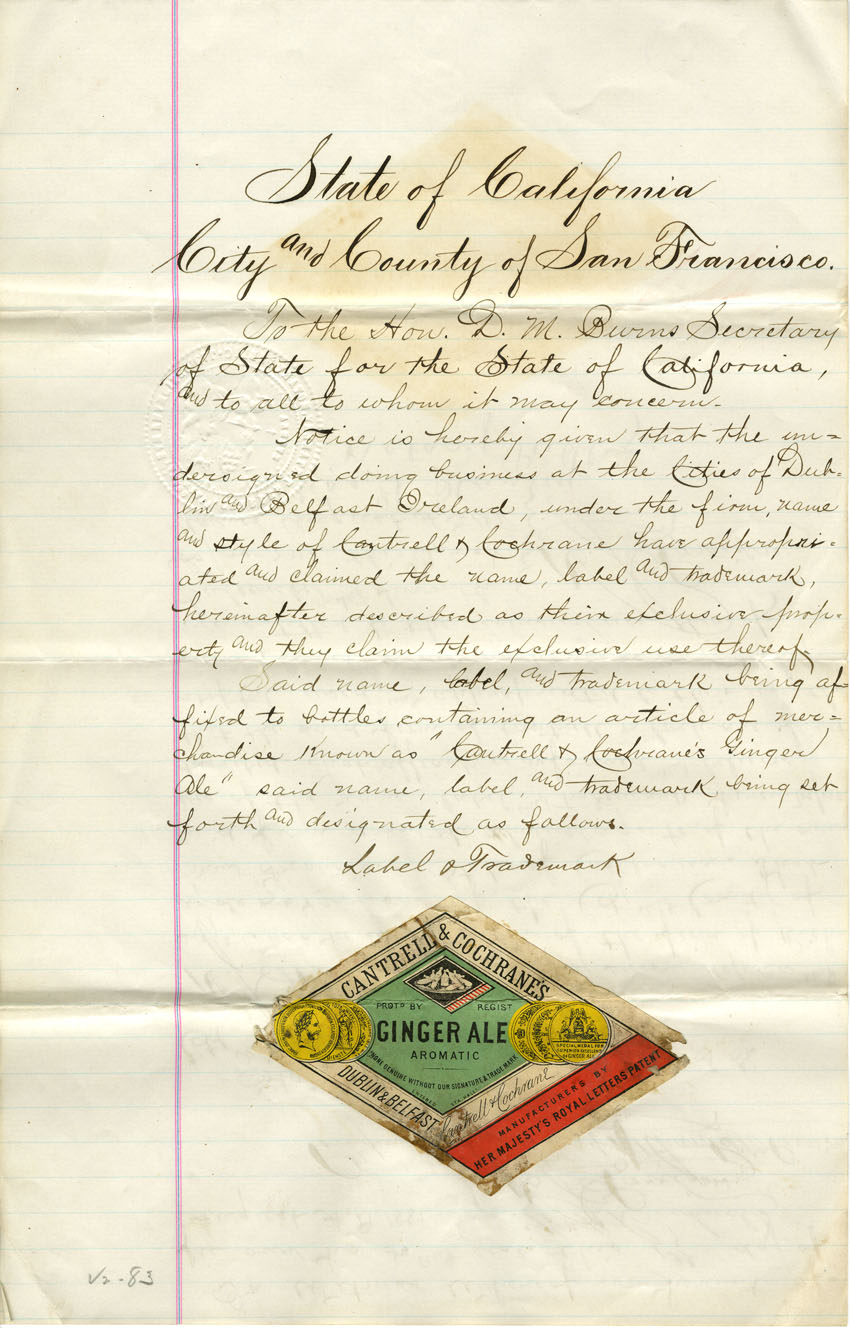 State of California
City and County of San Francisco.
To the Hon. D. M. Burns Secretary
of State for the State of California,
and to all to whom it may concern.
Notice is hereby given that the un=
dersigned doing business at the Cities of Dub=
lin and Belfast Ireland, under the firm, name
and style of Cantrell & Cochrane have appropri=
ated and claimed the name, label and trademark,
hereinafter described as their exclusive prop=
erty and they claim the exclusive use thereof.
Said name, label, and trademark being af=
fixed to bottles containing an article of mer=
chandise known as "Cantrell & Cochrane's Ginger
Ale" said name, label, and trademark being set
forth and designated as follows.
Label & Trademark
CANTRELL & COCHRANE'S
PROT'D BY REGIST
GINGER ALE
AROMATIC
NONE GENUINE WITHOUT OUR SIGNATURE & TRADE MARK
ENTERED
SPECIAL MEDAL FOR
SUPERIOR EXCELLENCE
OF GINGER ALE
DUBLIN & BELFAST
Cantrell & Cochrane
MANUFACTURERS BY
HER MAJESTY'S ROYAL LETTERS PATENT
V2-83